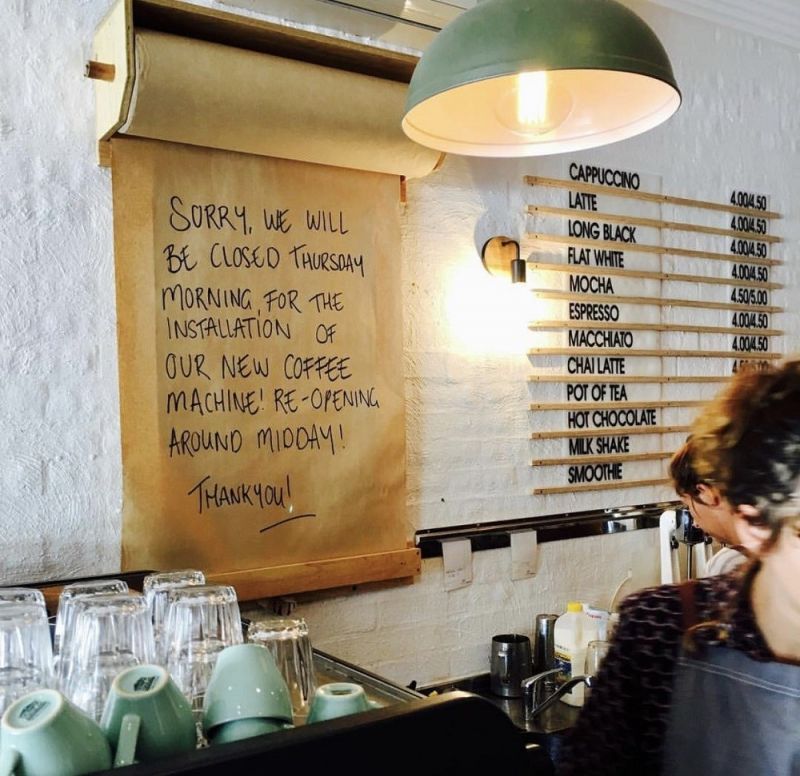 SORRY, WE WILL
BE CLOSED THURSDAY
MORNING, FOR THE
INSTALLATION OF
OUR NEW COFFEE
MACHINE! RE-OPENING
AROUND MIDDAY!
THANKYOU!
CAPPUCCINO 4.00/4.50
LATTE 4.00/4.50
LONG BLACK 4.00/4.50
FLAT WHITE 4.00/4.50
MOCHA 4.50/5.00
ESPRESSO 4.00/4.50
MACCHIATO 4.00/4.50
CHAI LATTE
POT OF TEA
HOT CHOCOLATE
MILK SHAKE
SMOOTHIE